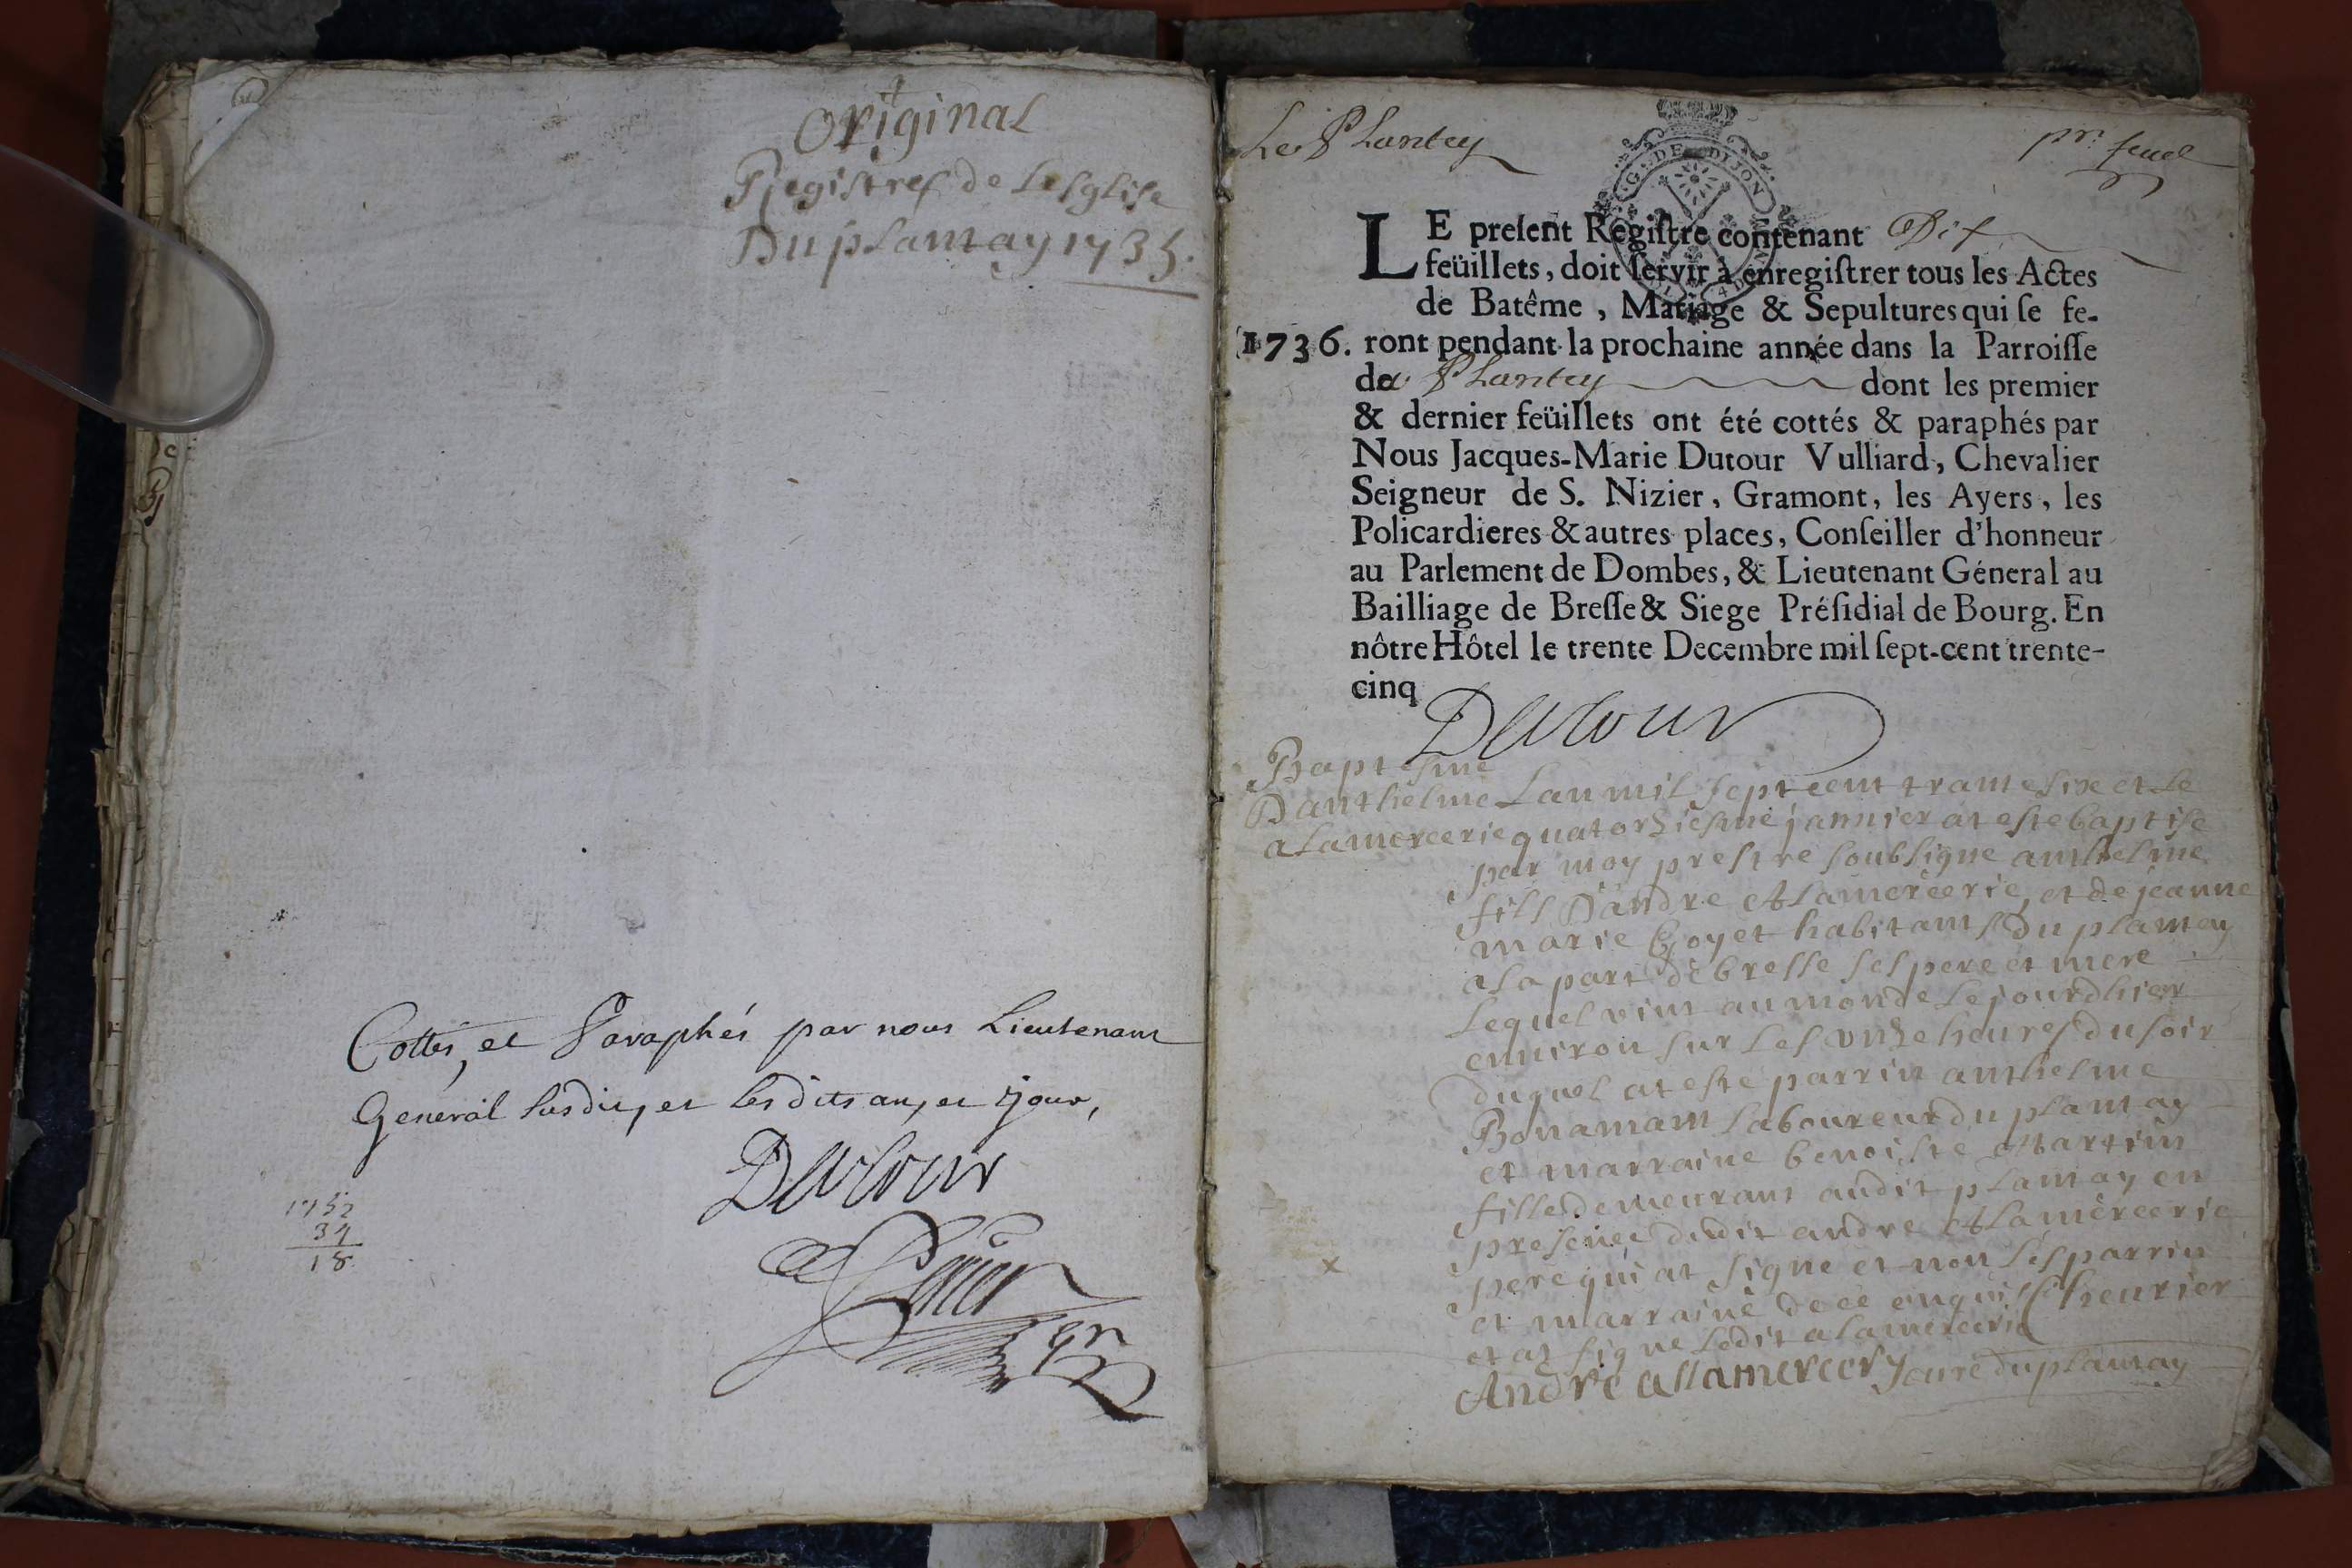 original
Registres de Lesglise
Du plantay 1735.
Cottés, et Paraphés par nous Lieutenant
General susdit, et lesdits an, et jour,
Dutour
1752
34
18
Le Plantey
pr. feuel
G. DE DIJON
LE preſent Regiſtre contenant Dix
feüillets, doit ſervir à enregiſtrer tous les Actes
de Batême, Mariage & Sepultures qui ſe fe-
1736. ront pendant la prochaine année dans la Parroiſſe
de Plantey dont les premier
& dernier feüillets ont été cottés & paraphés par
Nous Jacques-Marie Dutour Vulliard, Chevalier
Seigneur de S. Nizier, Gramont, les Ayers, les
Policardieres & autres places, Conſeiller d'honneur
au Parlement de Dombes, & Lieutenant Géneral au
Bailliage de Breſſe & Siege Préſidial de Bourg. En
nôtre Hôtel le trente Decembre mil ſept-cent trente-
cinq
Dutour
Baptesme
Danthelme
alamercerie
Lan mil sept cent trante sixe et le
quatorziesme janvier at esté baptisé
par moy prestre soubsigné anthelme
fills D'andre Alamercerie, et de jeanne
marie Goyet habitants du plantay
a la part de bresse ses pere et mere
Lequel vint au monde le jourdhier
environ sur les unze heures du soir
duquel at esté parrin anthelme
Bonamant laboureur du plantay
et marraine benoiste Martin
fille demeurant audit plantay en
presence dudit andre Alamercerie
pere qui at signé et non les parrin
et marraine de ce enquis
et at signé ledit alamercerie
Cheurier
André allamercery curé du plantay